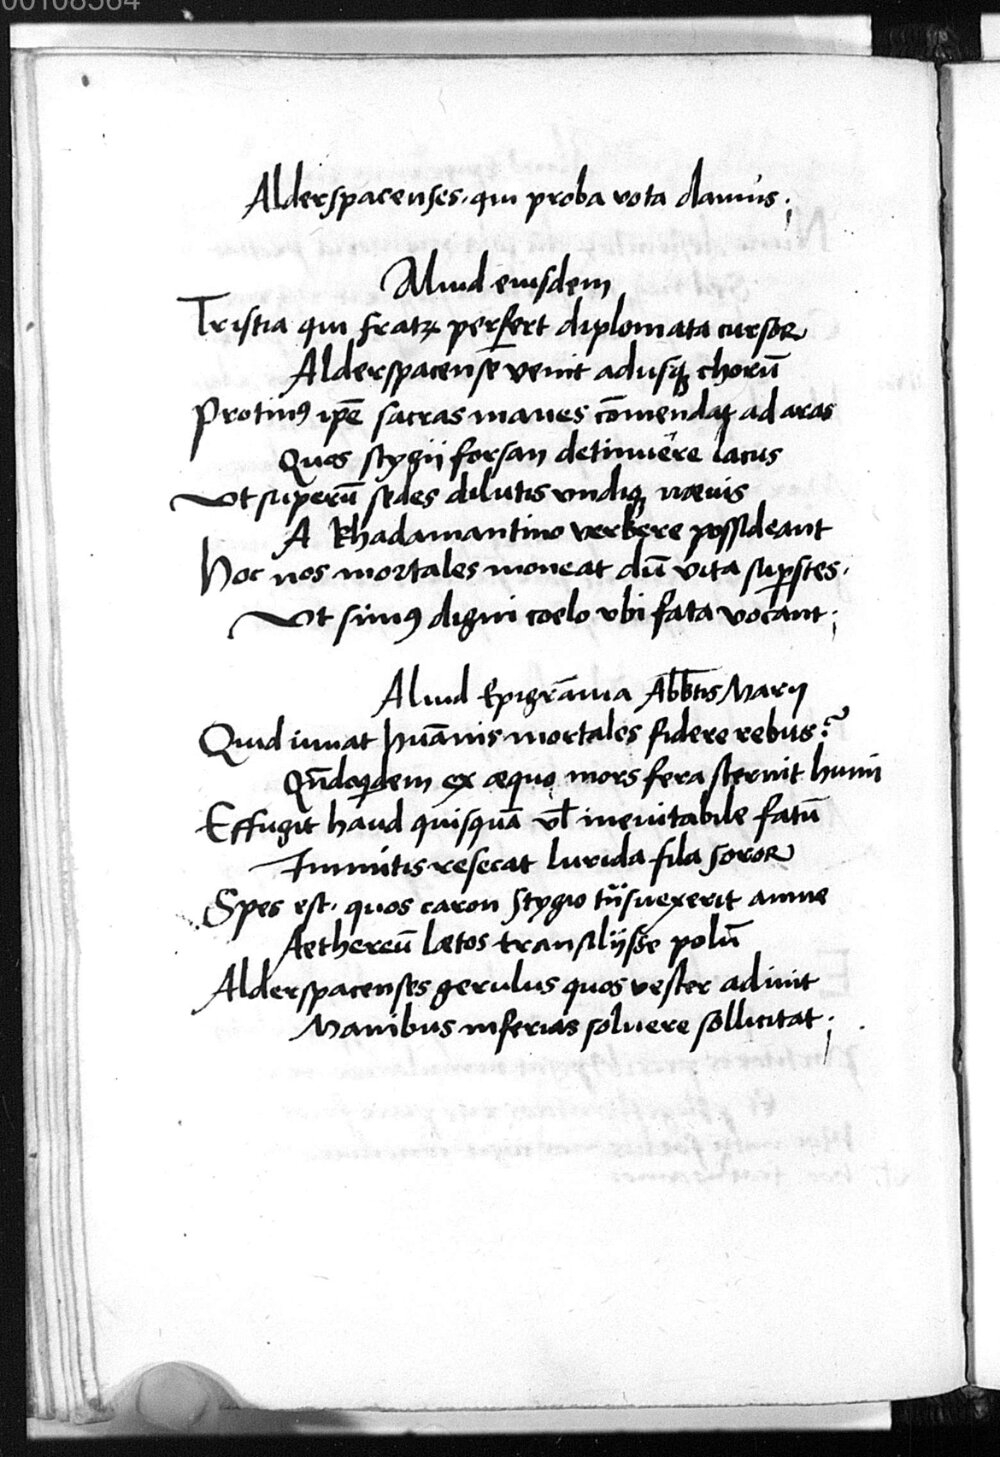 00108564
Alderspacenses. qui proba vota damus.;
Aliud eiusdem
Tristia qui fratrꝝ perfert diplomata cursor
Alderspacense venit adusqꝫ chorū
Protinꝰ ip̄e sacras manes cōmendat ad aras
Quos stygii forsan detinuêre lacus
Vt superū sedes dilutis vndiqꝫ nævis
A Rhadamantino verbere possideant
Hoc nos mortales moneat dū vita suꝑstes.
Vt simꝰ digni coelo vbi fata vocant.;
Aliud Epigrāma Abb̄tis Marij
Quid iuuat hūanis mortales fidere rebus:?
Qn̄doqͥdem ex æquo mors fera sternit humi
Effugit haud quisquā vl̄ ineuitabile fatū
Immitis resecat lurida fila soror
Spes est. quos caron Stygio trāsuexerit amne
Aethereū lætos transilijsse polū
Alderspacenses gerulus quos vester adimit
Manibus inferias soluere sollicitat.;